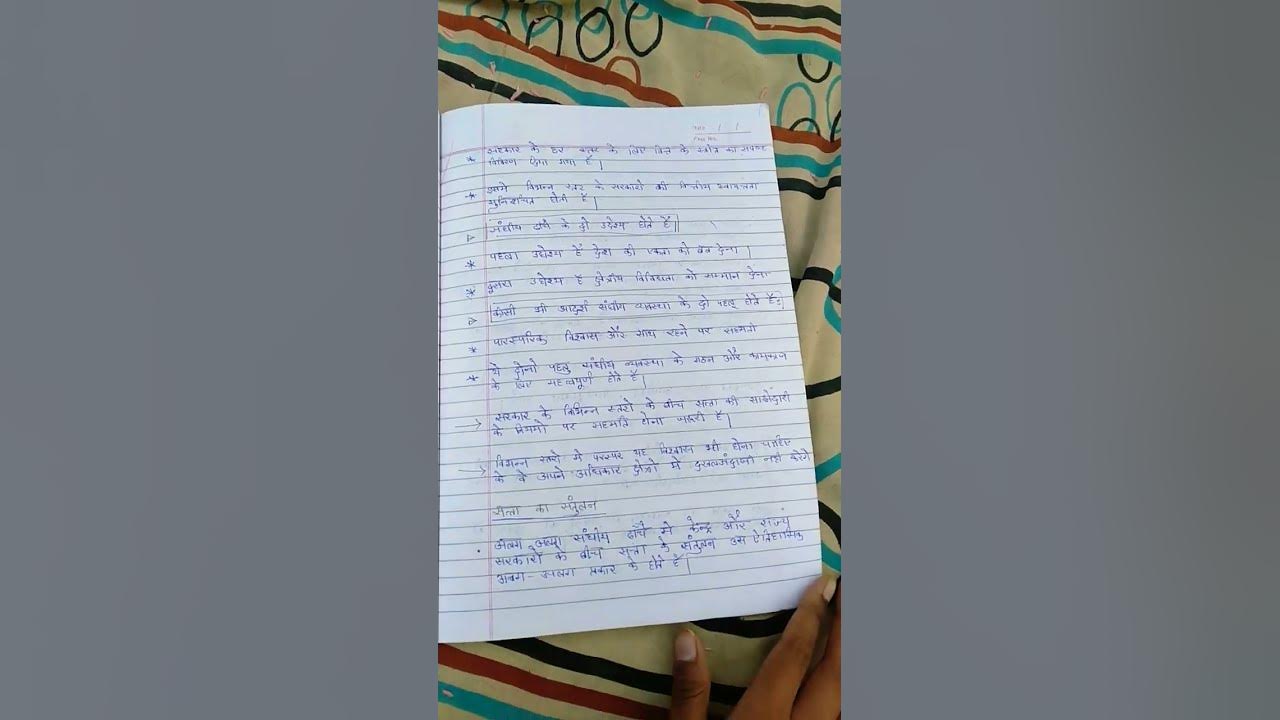 सरकार के हर स्तर के लिए वित्त के स्त्रोत का स्पष्ट
विवरण दिया गया है।
इसमे विभिन्न स्तर के सरकारो की वित्तीय स्वायत्तता
सुनिश्चित होती है।
संघीय ढाँचे के दो उद्देश्य होते है।
पहला उद्देश्य है देश की एकता को बल देना।
दूसरा उद्देश्य है क्षेत्रीय विविधता को सम्मान देना
किसी भी आदर्श संघीय व्यवस्था के दो पहलू होते है:
पारस्परिक विश्वास और साथ रहने पर सहमती
ये दोनो पहलु संघीय व्यवस्था के गठन और कामकाज
के लिए महत्वपूर्ण होते है।
सरकार के विभिन्न स्तरो के बीच सत्ता की साझेदारी
के नियमो पर सहमति होना जरूरी है।
विभिन्न स्तरो मे परस्पर यह विश्वास भी होना चाहिए
के वे अपने अधिकार क्षेत्रो मे दखलअंदाजी नही करेंगे
सत्ता का संतुलन
अलग अलग संघीय ढाँचे मे केन्द्र और राज्य
सरकारो के बीच सत्ता के संतुलन उस ऐतिहासिक
अलग-अलग प्रकार के होते है।